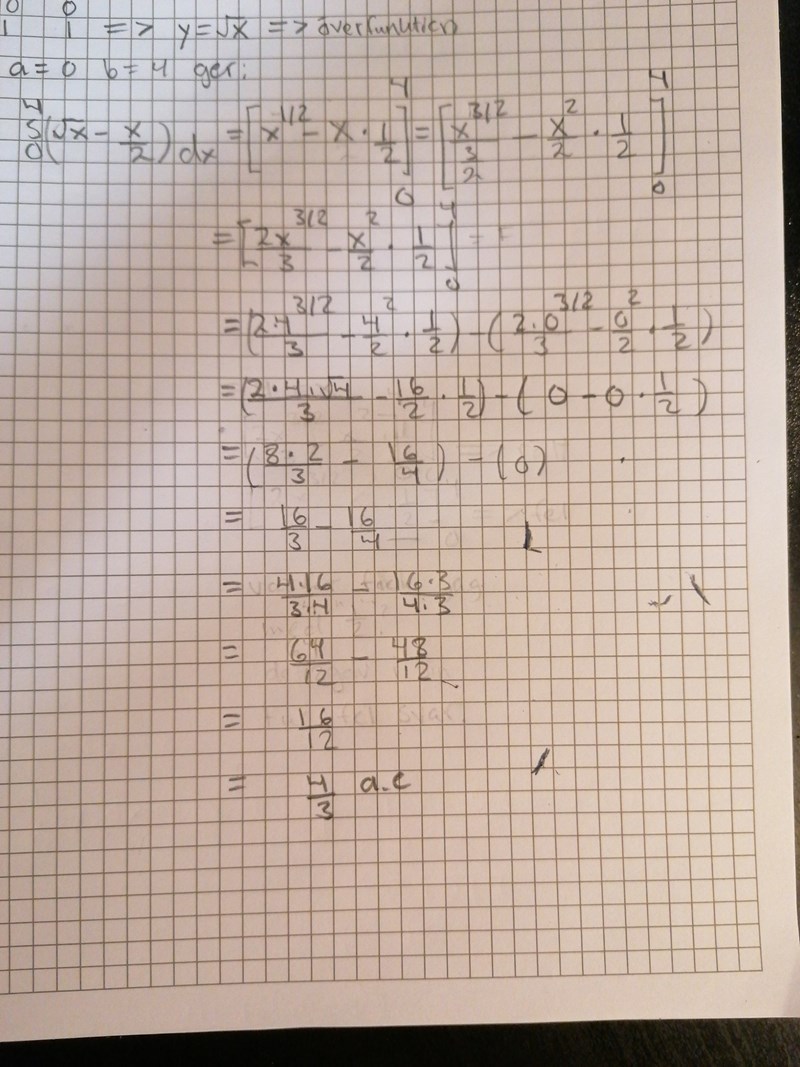 0 0
1 1 => y=√x => överfunktion
a=0 b=4 ger:
4∫0 (√x - x/2) dx = [x^1/2 - x · 1/2]4 0 = [x^3/2 / 3/2 - x^2/2 · 1/2]4 0
= [2x^3/2 / 3 - x^2/2 · 1/2]4 0
= (2·4^3/2 / 3 - 4^2/2 · 1/2) - (2·0^3/2 / 3 - 0^2/2 · 1/2)
= (2·4·√4 / 3 - 16/2 · 1/2) - (0 - 0 · 1/2)
= (8·2/3 - 16/4) - (0)
= 16/3 - 16/4
= 4·16/3·4 - 16·3/4·3
= 64/12 - 48/12
= 16/12
= 4/3 a.e